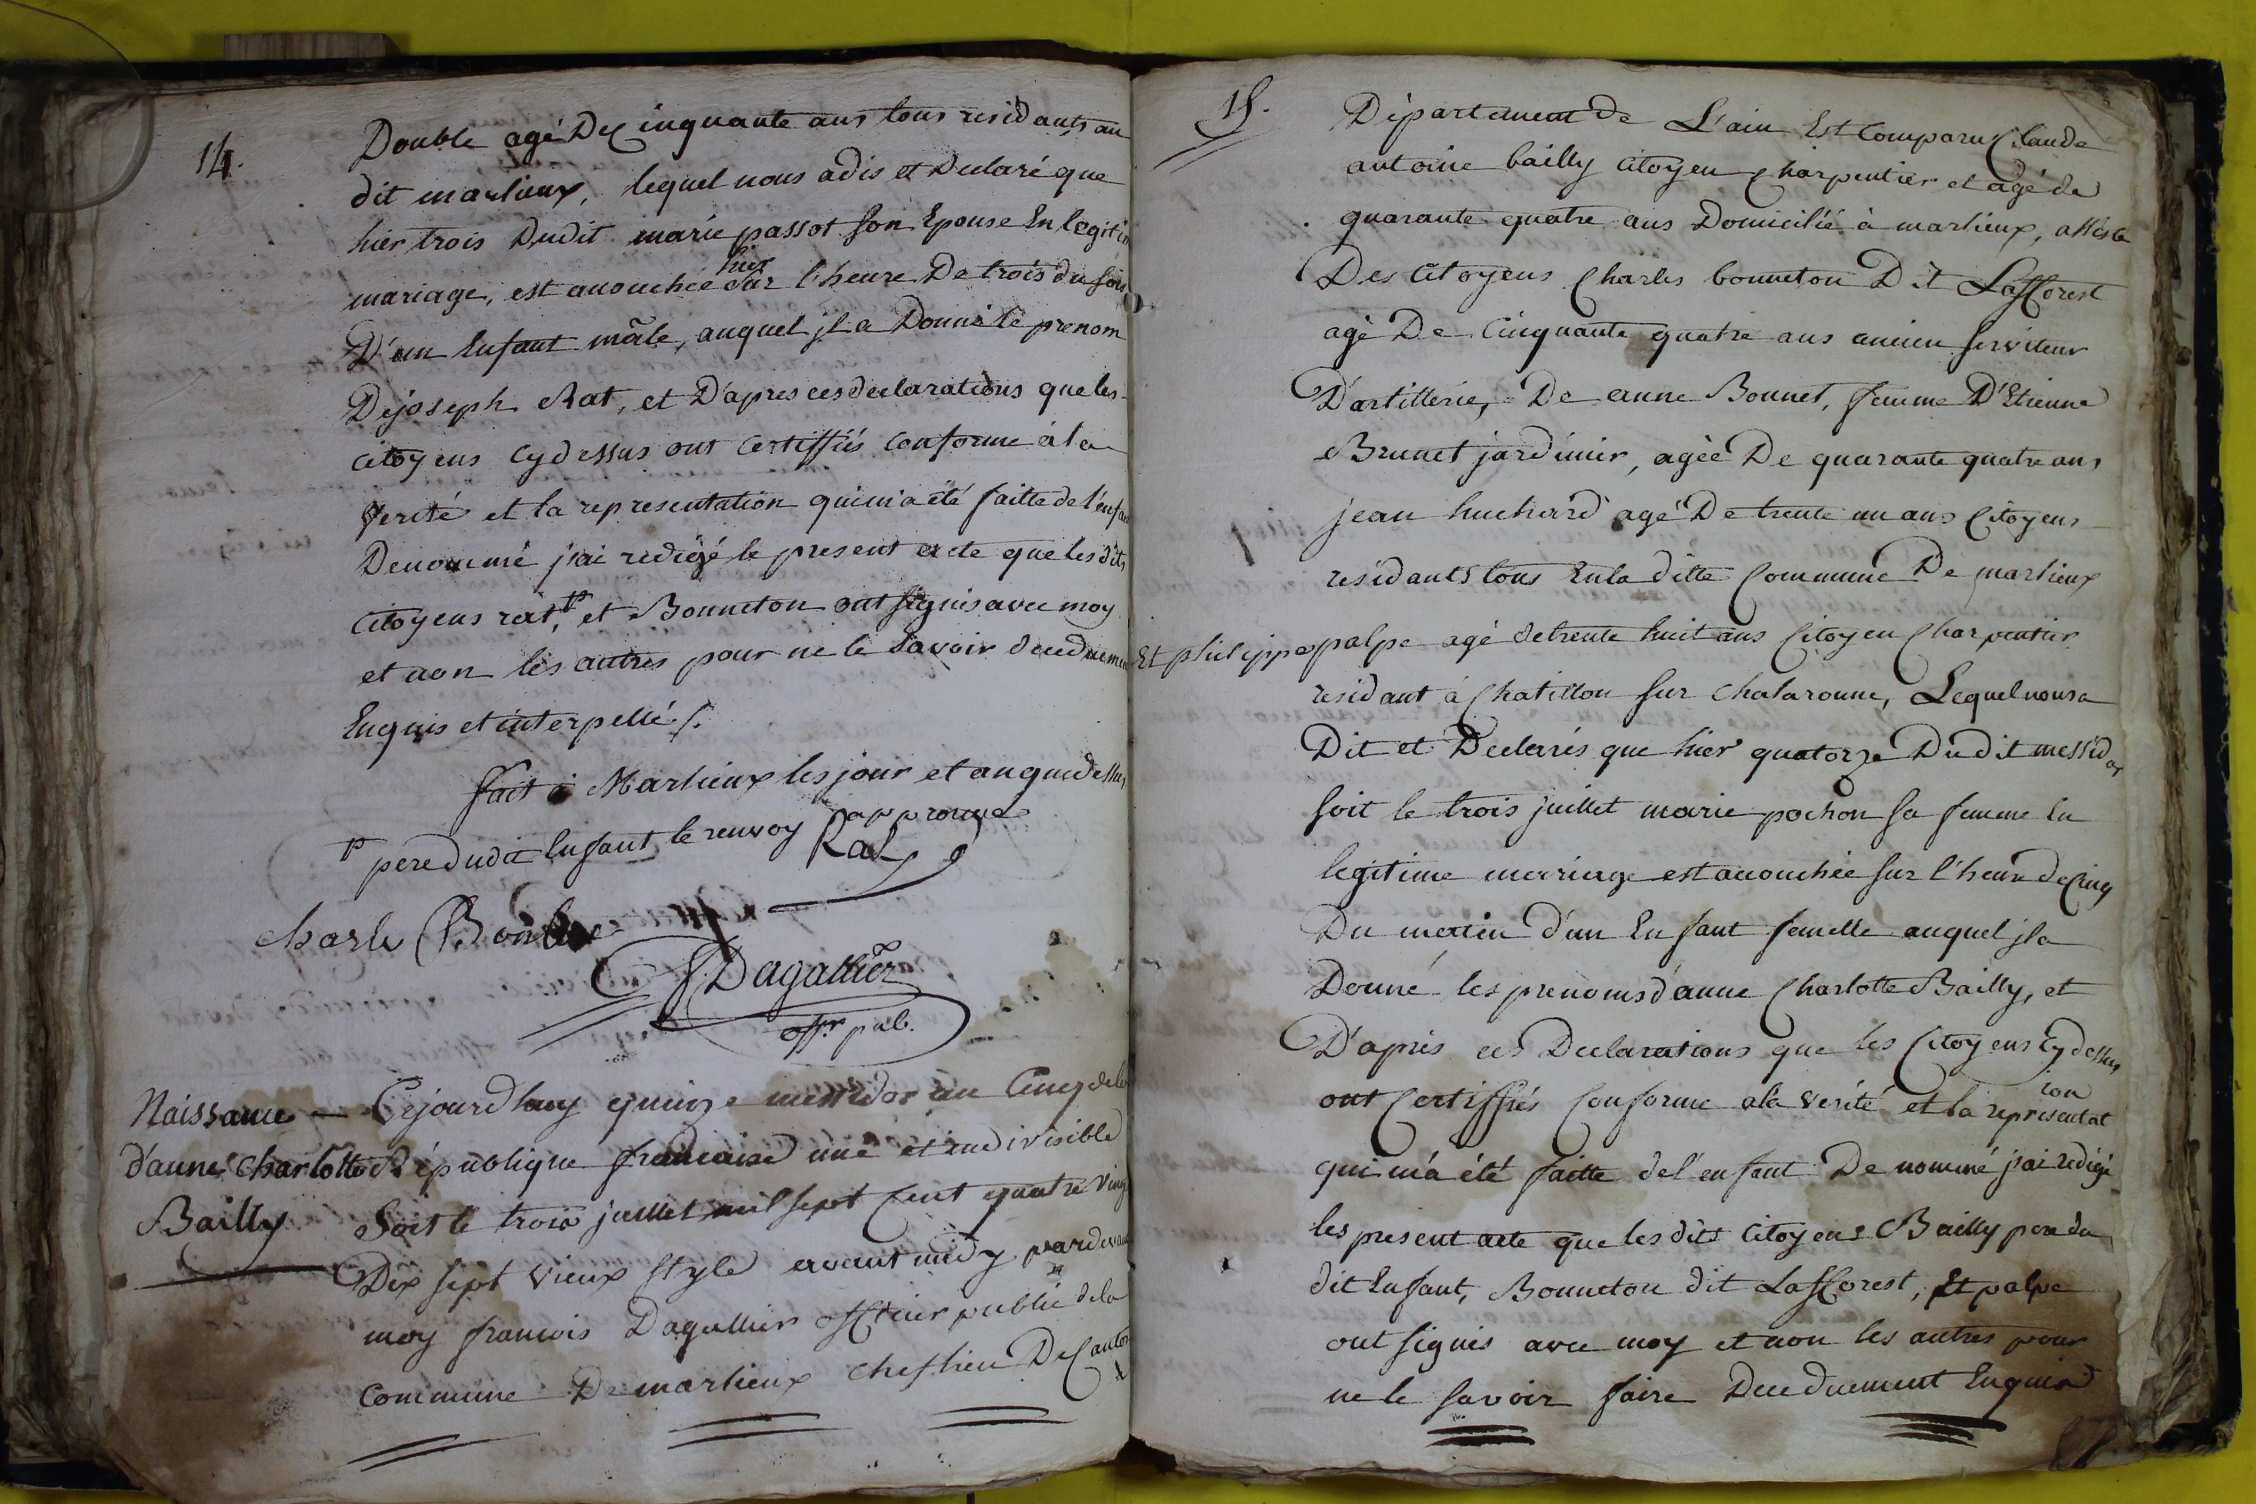 14.
Double agé De Cinquante ans tous residants au
dit marlieux, lequel nous a dis et Declaré que
hier trois Dudit marie passot son Epouse En legiti
mariage, est acouchée hier sur l'heure De trois du soir
D'un Enfant mâle, auquel jl a Donné le prenom
De joseph Rat, et D'apres ces declarations que les
citoyens cy dessus ont certiffiés conforme à la
verité et la representation qui m'a été faitte de l'enfan
Denommé j'ai redigé le present acte que les dits
citoyens rat, et Bonneton ont signés avec moy
et non les autres pour ne le savoir deuduemen
Enquis et interpellé ./.
fait à Marlieux les jour et an que dessus
pere dudit Enfant le renvoy approuvé
Rat
charle
J. Dagallier
offr. pub.
Naissance
d'anne Charlotte
Bailly
Cejourdhuy quinze messidor an Cinq de la
République francaise une et indivisible
Soit le trois juillet mil sept Cent quatre ving
Dix sept vieux style avant midy pardevan
moy francois Dagallier officier public de la
commune De marlieux chef lieu De Canton
15.
Département de L'ain Est Comparu Claude
antoine bailly citoyen Charpentier et agé de
quarante quatre ans Domicilié à marlieux, assisté
Des citoyens Charles bonneton Dit Lafforest
agé De Cinquante quatre ans ancien serviteur
D'artillerie, De anne Bonnet, femme D'Etienne
Brunet jardinier, agée De quarante quatre ans
jean huchard agé De trente un ans Citoyens
residants tous En la ditte Commune De marlieux
Et philippe palpe agé de trente huit ans Citoyen Charpentier
residant à Chatillon sur chalaronne, Lequel nous a
Dit et Declarés que hier quatorze Dudit messidor
soit le trois juillet marie pochon sa femme En
legitime marriage est acouchée sur l'heure de Cinq
Du matin d'un Enfant femelle auquel jl a
Donné les prenoms d'anne Charlotte Bailly, et
D'aprés ces Declarations que les Citoyens Cy dessus
ont Certiffiés Conforme a la verité et la representation
qui m'a été faitte de l'enfant De nommé j'ai redigé
les present acte que les dits citoyens Bailly pere du
dit Enfant, Bonneton dit Lafforest, Et palpe
ont signés avec moy et non les autres pour
ne le savoir faire Deuduement Enquis